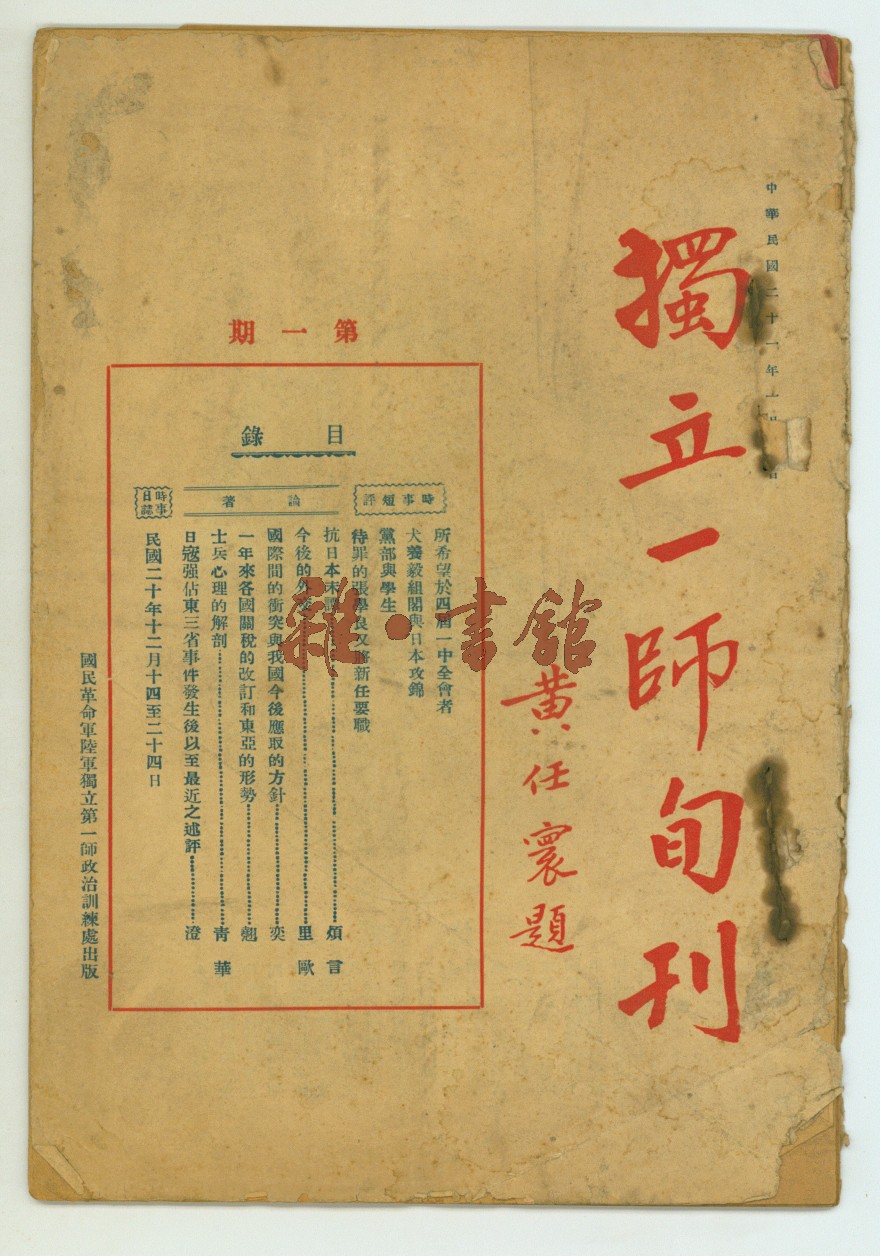 中華民國二十一年
獨立一師旬刊
黄任寰題
第一期
目錄
時事短評
所希望於四屆一中全會者
犬養毅組閣與日本攻錦
黨部與學生
待罪的張學良又將新任要職
論著
抗日本末 煩言
今後的外交 里歐
國際間的衝突與我國今後應取的方針 奕
一年來各國關稅的改訂和東亞的形勢 翹
士兵心理的解剖 靑華
日寇强佔東三省事件發生後以至最近之述評 澄
時事日誌
民國二十年十二月十四至二十四日
國民革命軍陸軍獨立第一師政治訓練處出版
雜·書館